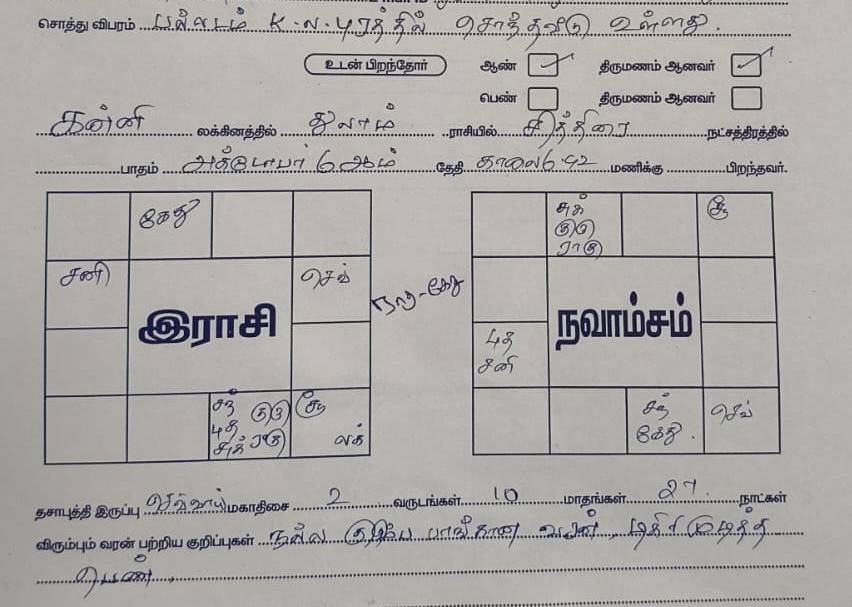 சொத்து விபரம் பல்லடம் K.ல.புரத்தில் சொந்தவீடு உள்ளது.
உடன் பிறந்தோர் ஆண் ✓ திருமணம் ஆனவர் ✓
பெண் திருமணம் ஆனவர்
கன்னி லக்கினத்தில் துலாம் ராசியில் சித்திரை நட்சத்திரத்தில்
பாதம் அக்டோபர் 6 ஆம் தேதி காலை 6.42 மணிக்கு பிறந்தவர்.
கேது
சனி
செவ்
இராசி
சந் குரு சூ
புத
சுக் ராகு லக்
ராகு-கேது
சுக்
குரு
ராகு
சூ
நவாம்சம்
புத
சனி
சந்
கேது.
செவ்
தசாபுத்தி இருப்பு செவ்வாய் மகாதிசை 2 வருடங்கள் 10 மாதங்கள் 27 நாட்கள்
விரும்பும் வரன் பற்றிய குறிப்புகள் நல்ல குடும்ப பாங்கான வரன், டிகிரி முடித்த
பெண்.